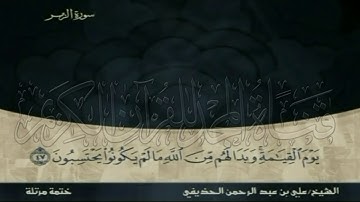 سورة الزمر
قناة المجد للقرآن الكريم
يَوْمَ الْقِيَامَةِ وَبَدَا لَهُم مِّنَ اللَّهِ مَا لَمْ يَكُونُوا يَحْتَسِبُونَ ٤٧
الشيخ/علي بن عبد الرحمن الحذيفي
ختمة مرتلة